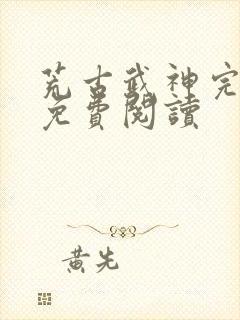 荒古武神完
免費閱讀
黃先